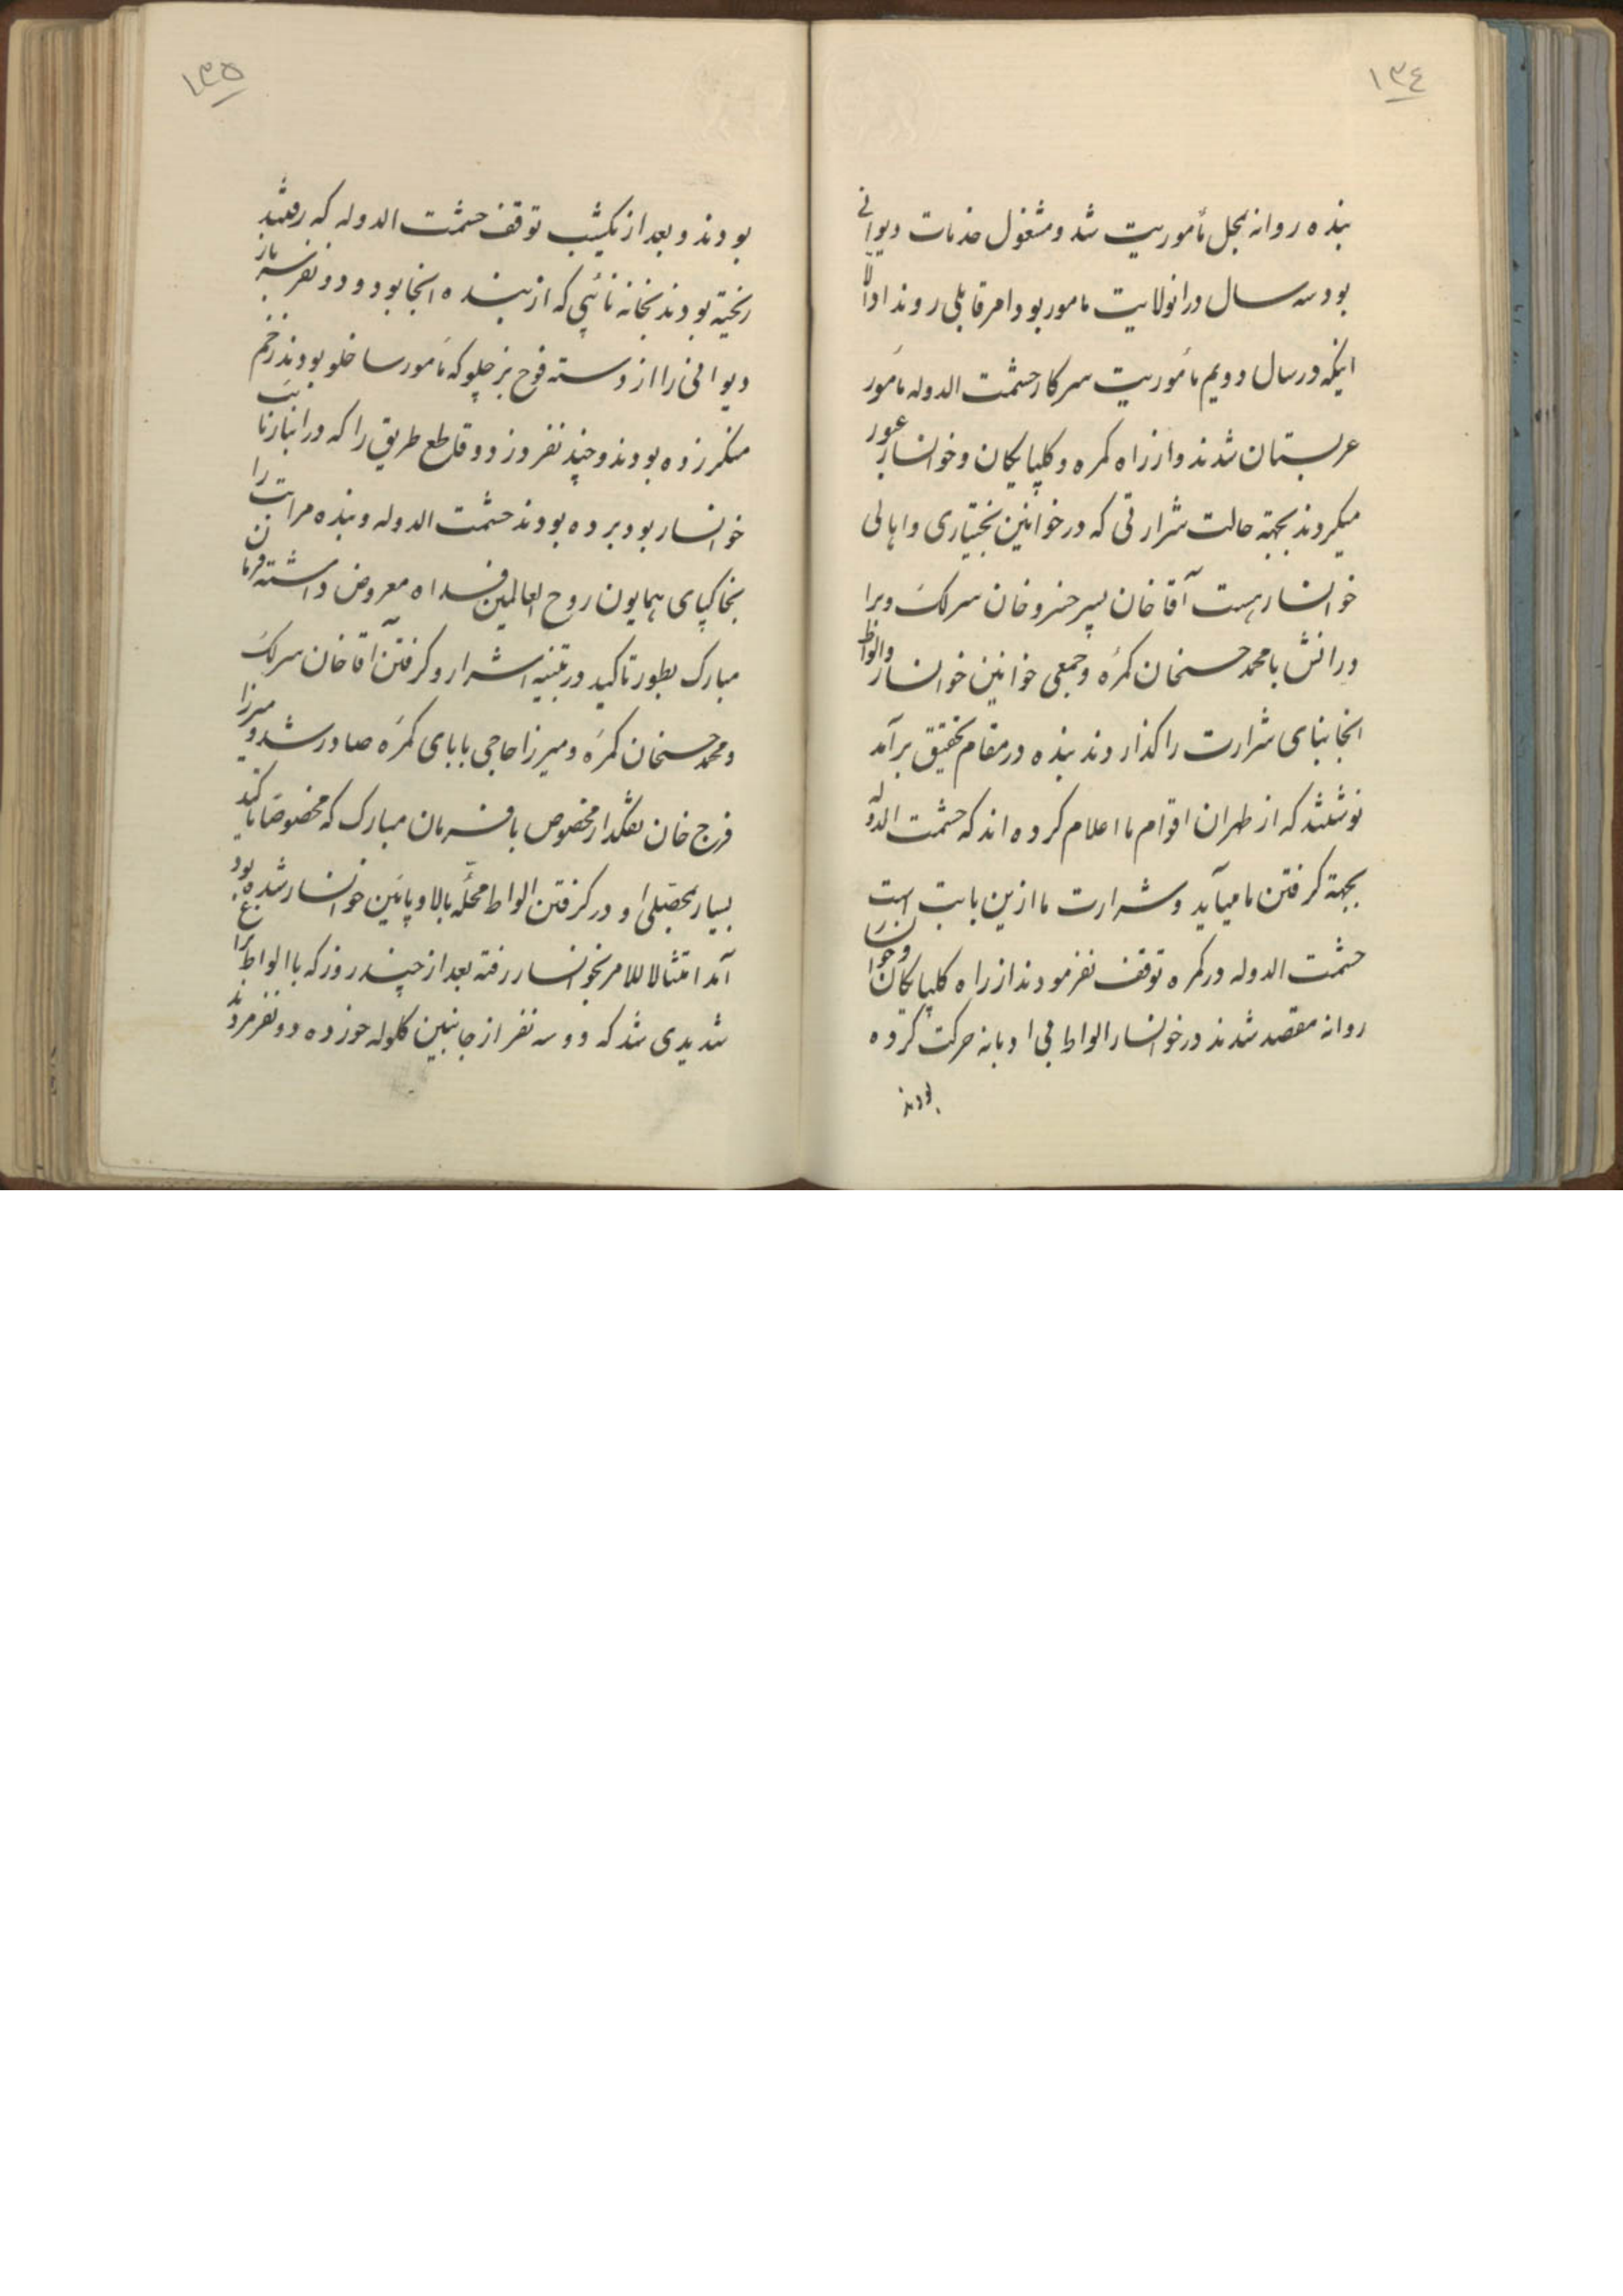 ١٣٤
بنده روانه بمحل مأموریت شد و مشغول خدمات دیوانی
بود سه سال در انولایت مامور بود و امر قابلی روند اد الّا
اینکه در سال دویم مأموریت سرکار حشمت الدوله مأمور
عربستان شدند و از راه کمره و کلپایکان و خوانسار عبور
میکردند بجهة حالت شرارتی که در خوانین بختیاری و اهالی
خوانسار هست آقا خان پسر خسرو خان سرلک و برا
درانش با محمد حسنخان کمره و جمعی خوانین خوانسار و الواط
انجا بنای شرارت را کذاردند بنده در مقام تحقیق برآمد
نوشتند که از طهران اقوام ما اعلام کرده اند که حشمت الدوله
بجهة کرفتن ما میآید و شرارت ما ازین بابت است
حشمت الدوله در کمره توقف نفرمودند از راه کلپایکان و خوانسار
روانه مقصد شدند در خوانسار الواط بی ادبانه حرکت کرده
بودند
١٣٥
بودند و بعد از یکشب توقف حشمت الدوله که رفتند
ریخته بودند بخانه نائبی که از بنده انجا بود و دو نفر سرباز
دیوانی را از دسته فوج بزچلو که مأمور ساخلو بودند زخم
منکر زده بودند و چند نفر دزد و قاطع طریق را که در انبار نائب
خوانسار بود برده بودند حشمت الدوله و بنده مراتب را
بخاکپای همایون روح العالمین فداه معروض داشته فرمان
مبارک بطور تاکید در تنبیه اشرار و کرفتن آقا خان سرلک
و محمد حسنخان کمره و میرزا حاجی بابای کمره صادر شد و میرزا
فرج خان تفنکدار مخصوص با فرمان مبارک که مخصوصا تاکید
بسیار بمحصلی او در کرفتن الواط محلّه بالا و پائین خوانسار شده بود
آمد امتثالا للامر بخوانسار رفته بعد از چند روز که با الواط نزاع
شدیدی شد که دو سه نفر از جانبین کلوله خورده دو نفر مردند